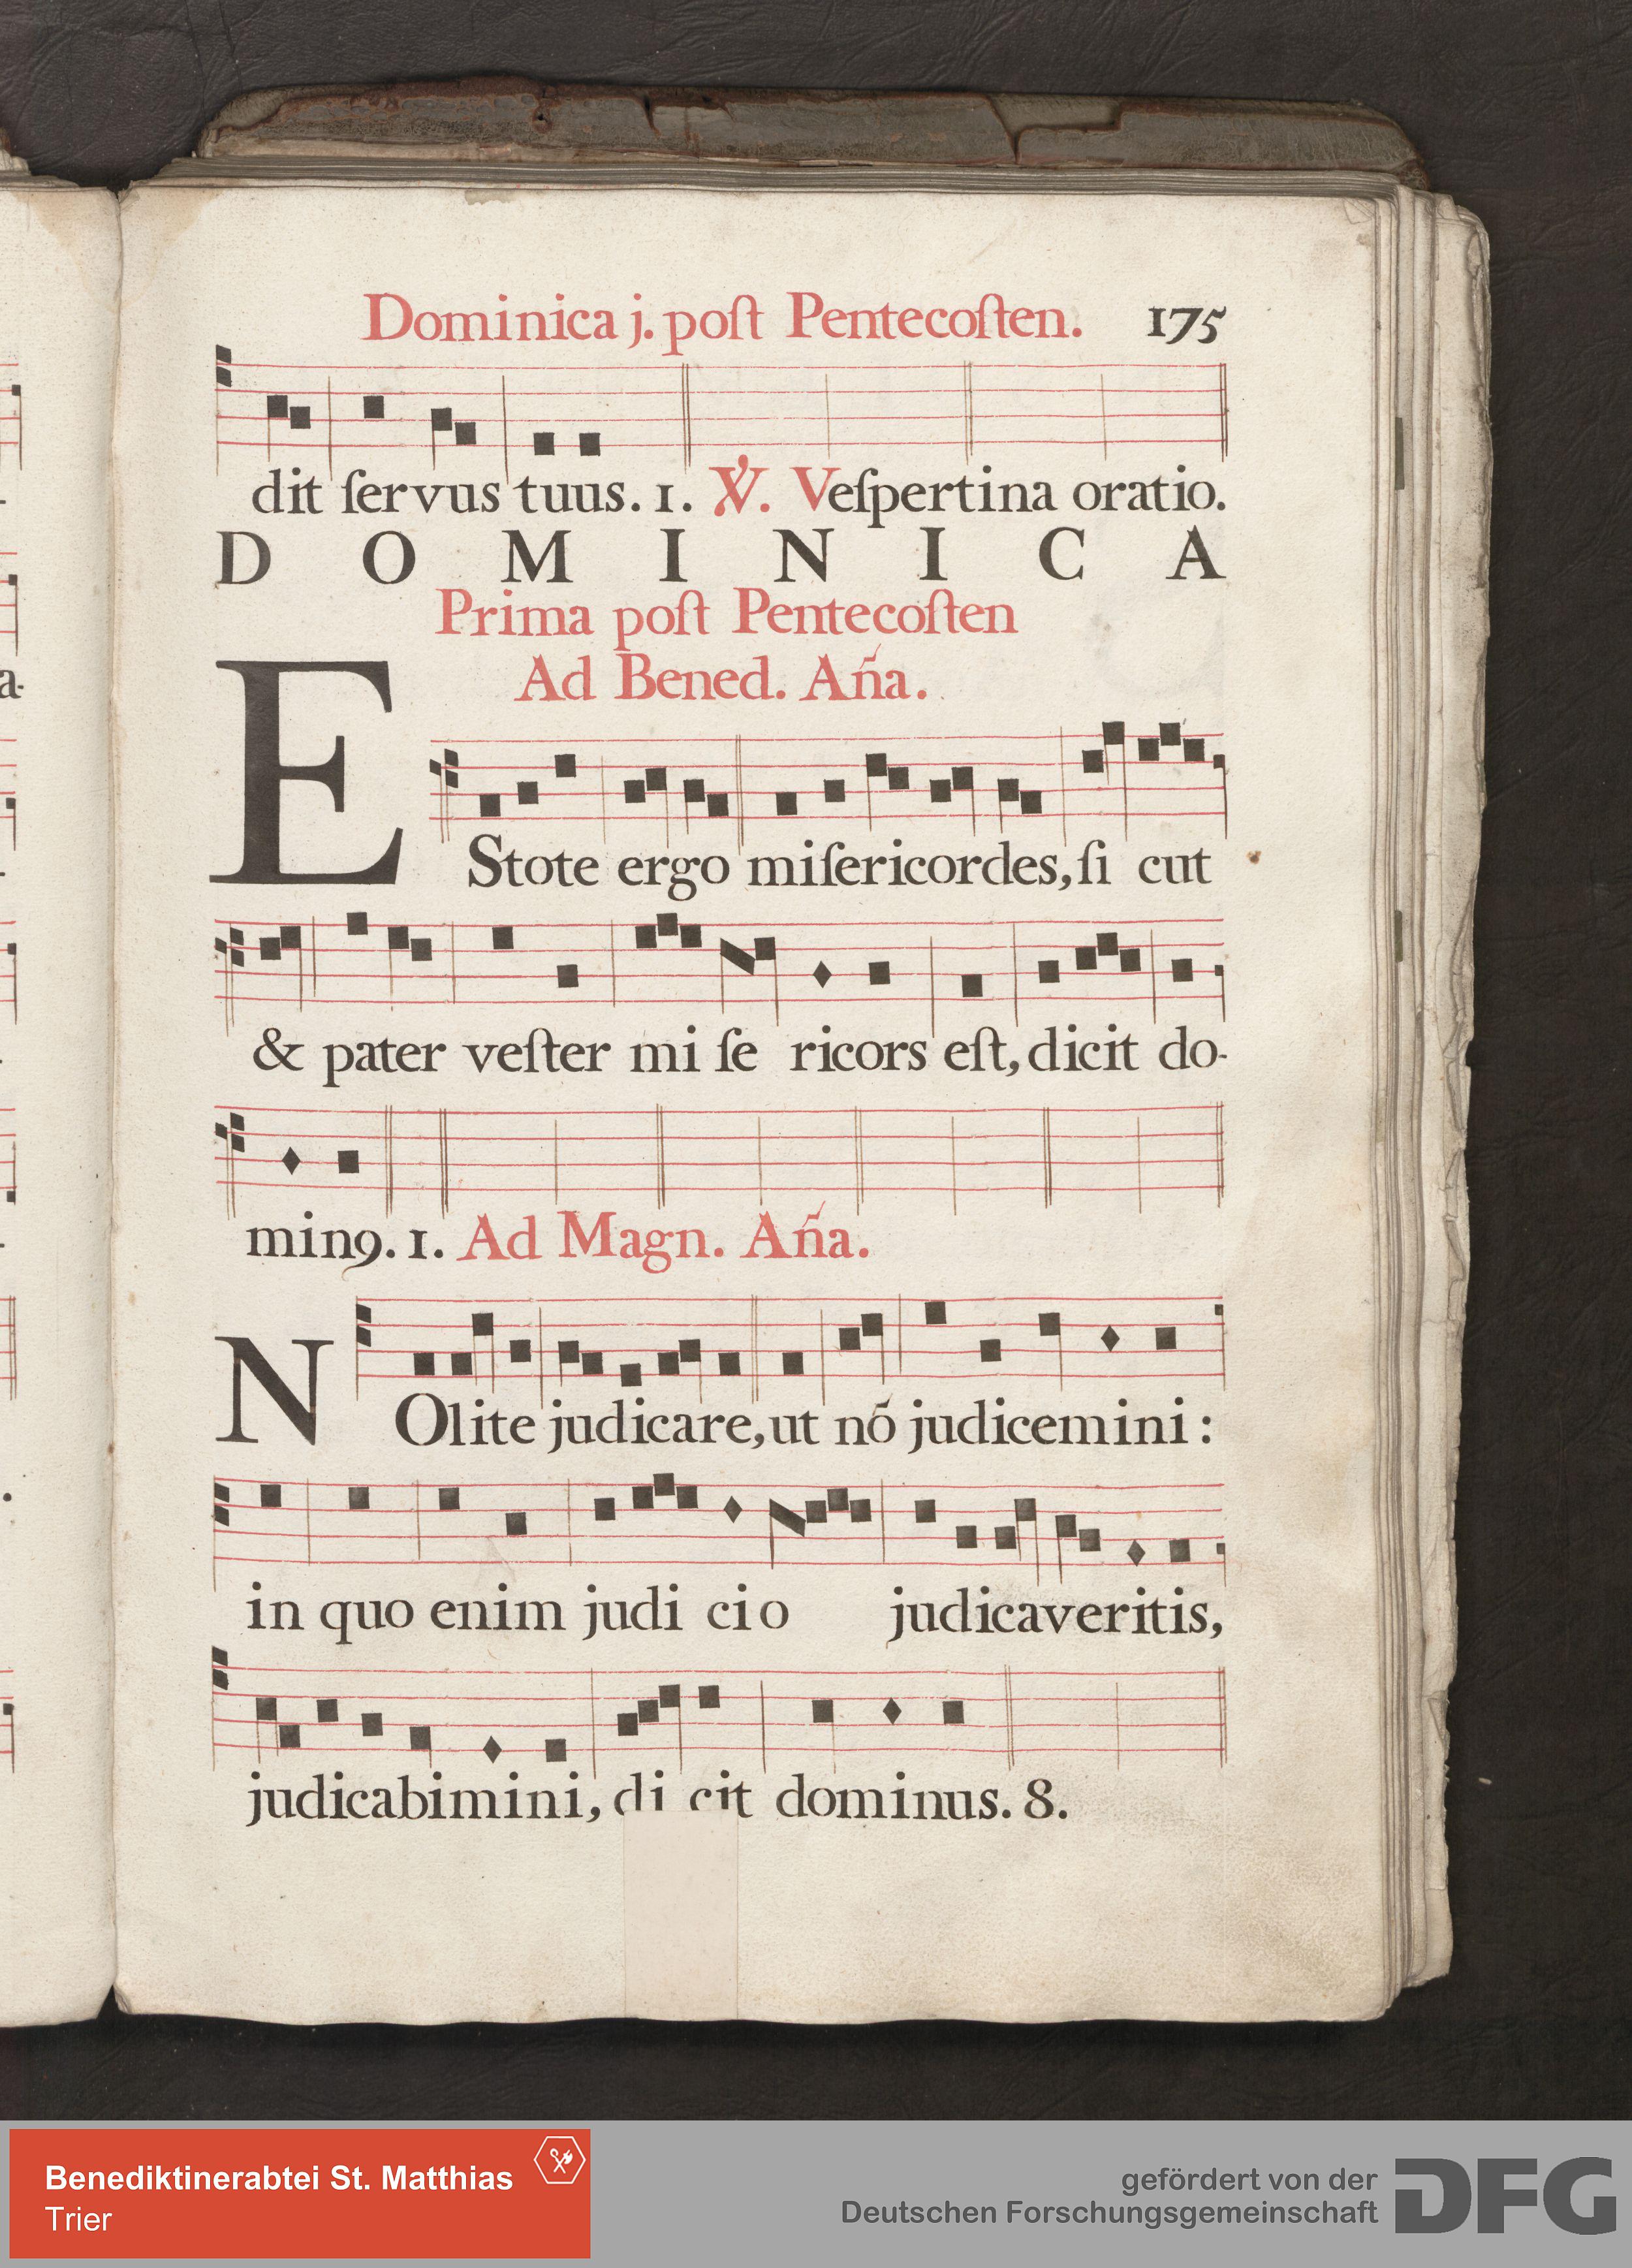 Dominica j. poſt Pentecoſten. 175
dit ſervus tuus. 1. ℣. Veſpertina oratio.
DOMINICA
Prima poſt Pentecoſten
Ad Bened. Aña.
EStote ergo miſericordes, ſi cut
& pater veſter mi ſe ricors eſt, dicit do-
min9. 1. Ad Magn. Aña.
NOlite judicare, ut nō judicemini:
in quo enim judi cio judicaveritis,
judicabimini, di cit dominus. 8.
a-
Benediktinerabtei St. Matthias
Trier
gefördert von der
Deutschen Forschungsgemeinschaft
DFG